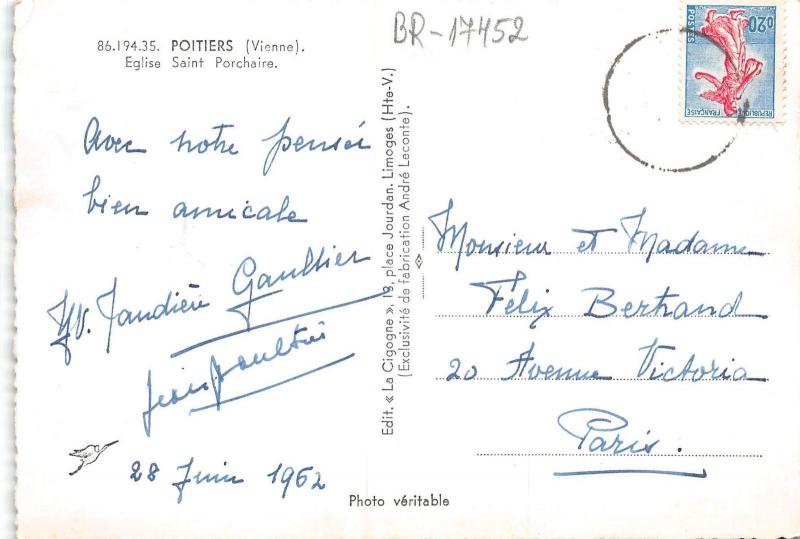 86.194.35. POITIERS (Vienne).
Eglise Saint Porchaire.
Avec notre pensée
bien amicale
Gaultier
28 Juin 1962
Edit. « La Cigogne », 19, place Jourdan. Limoges (Hte-V.)
(Exclusivité de fabrication André Leconte).
Photo véritable
BR-17452
0,20
POSTES
REPUBLIQUE FRANÇAISE
Monsieur et Madame
Félix Bertrand
20 Avenue Victoria
Paris.